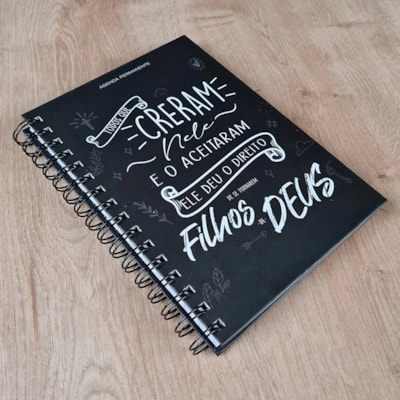 AGENDA PERMANENTE
TODOS QUE
CRERAM
Nele
E O ACEITARAM
ELE DEU O DIREITO
DE SE TORNAREM
Filhos DE DEUS